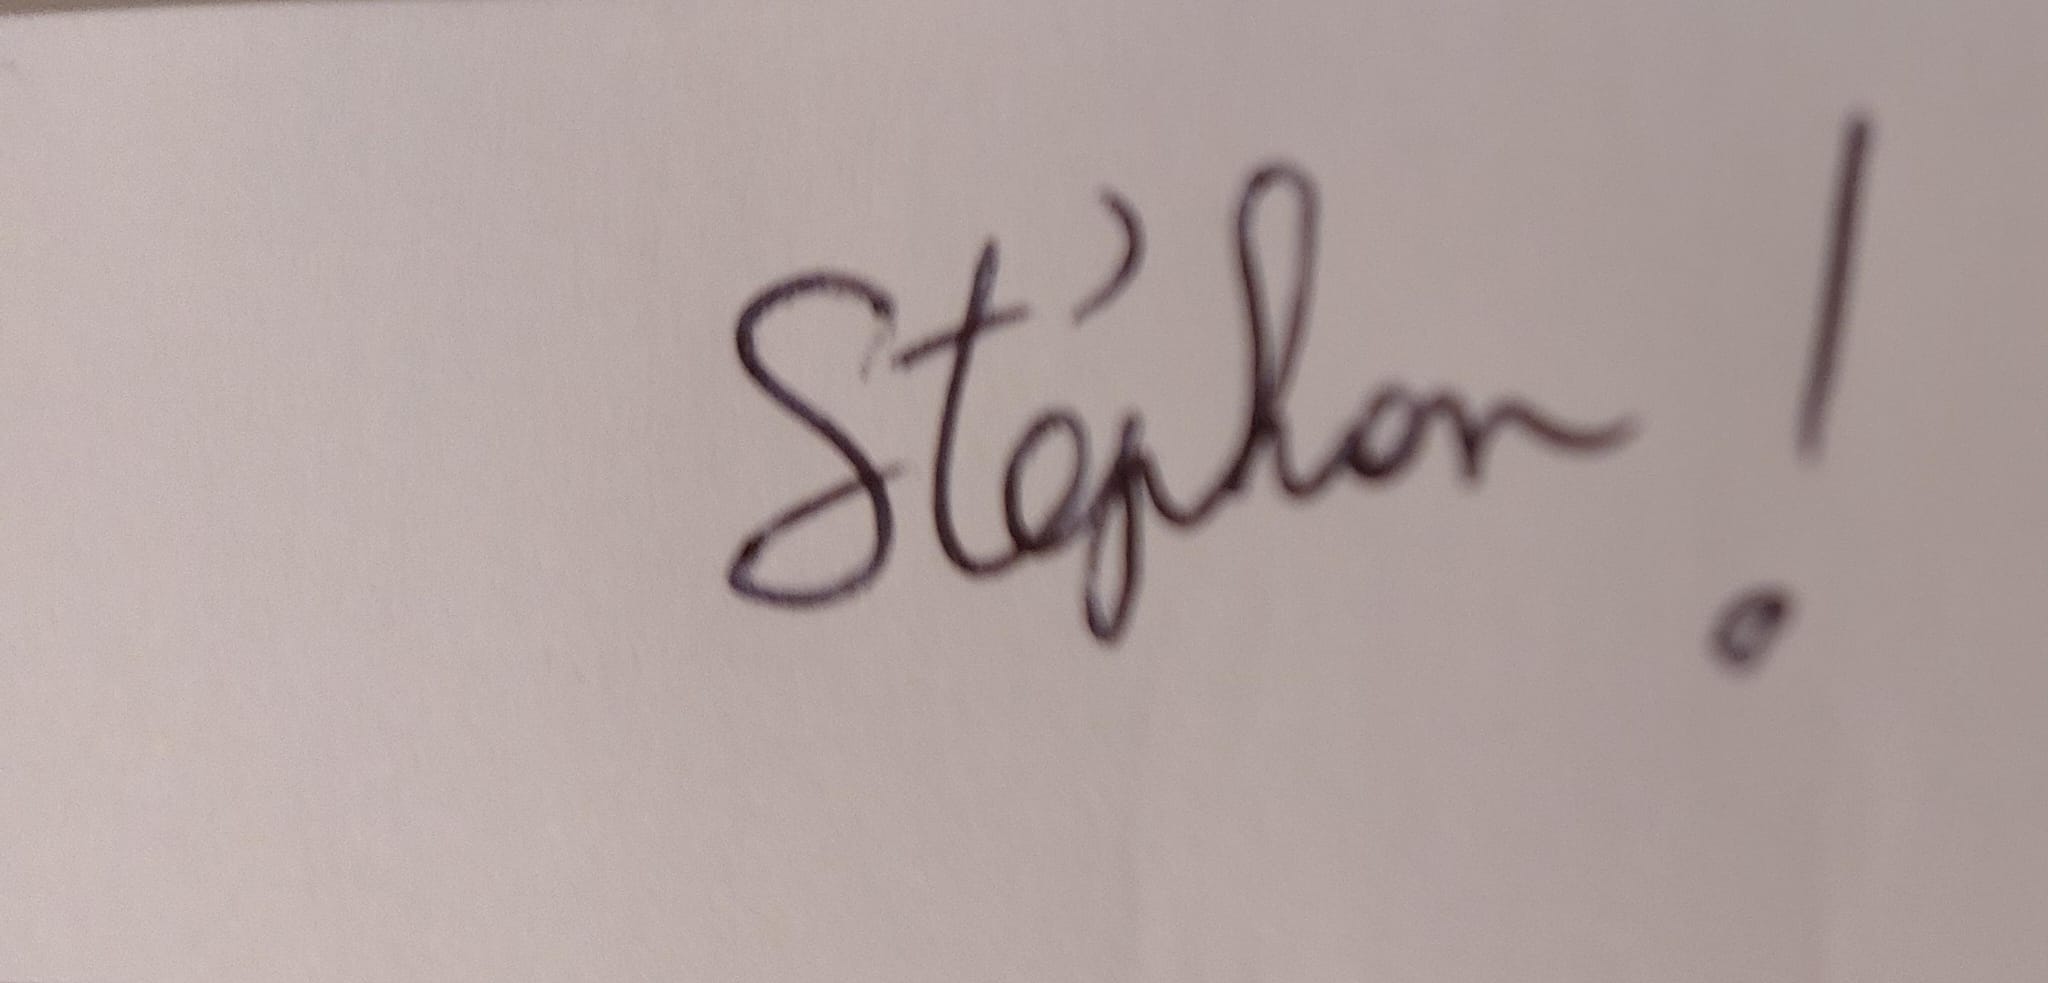 Stéphan !